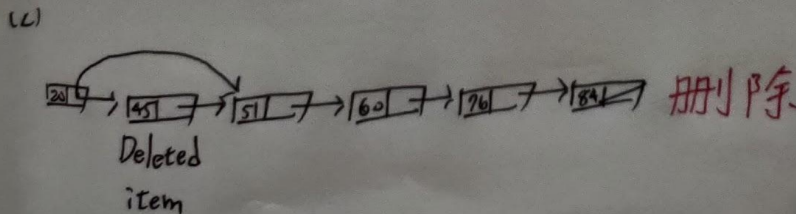 (c)
20 45 51 60 76 84 删除
Deleted
item